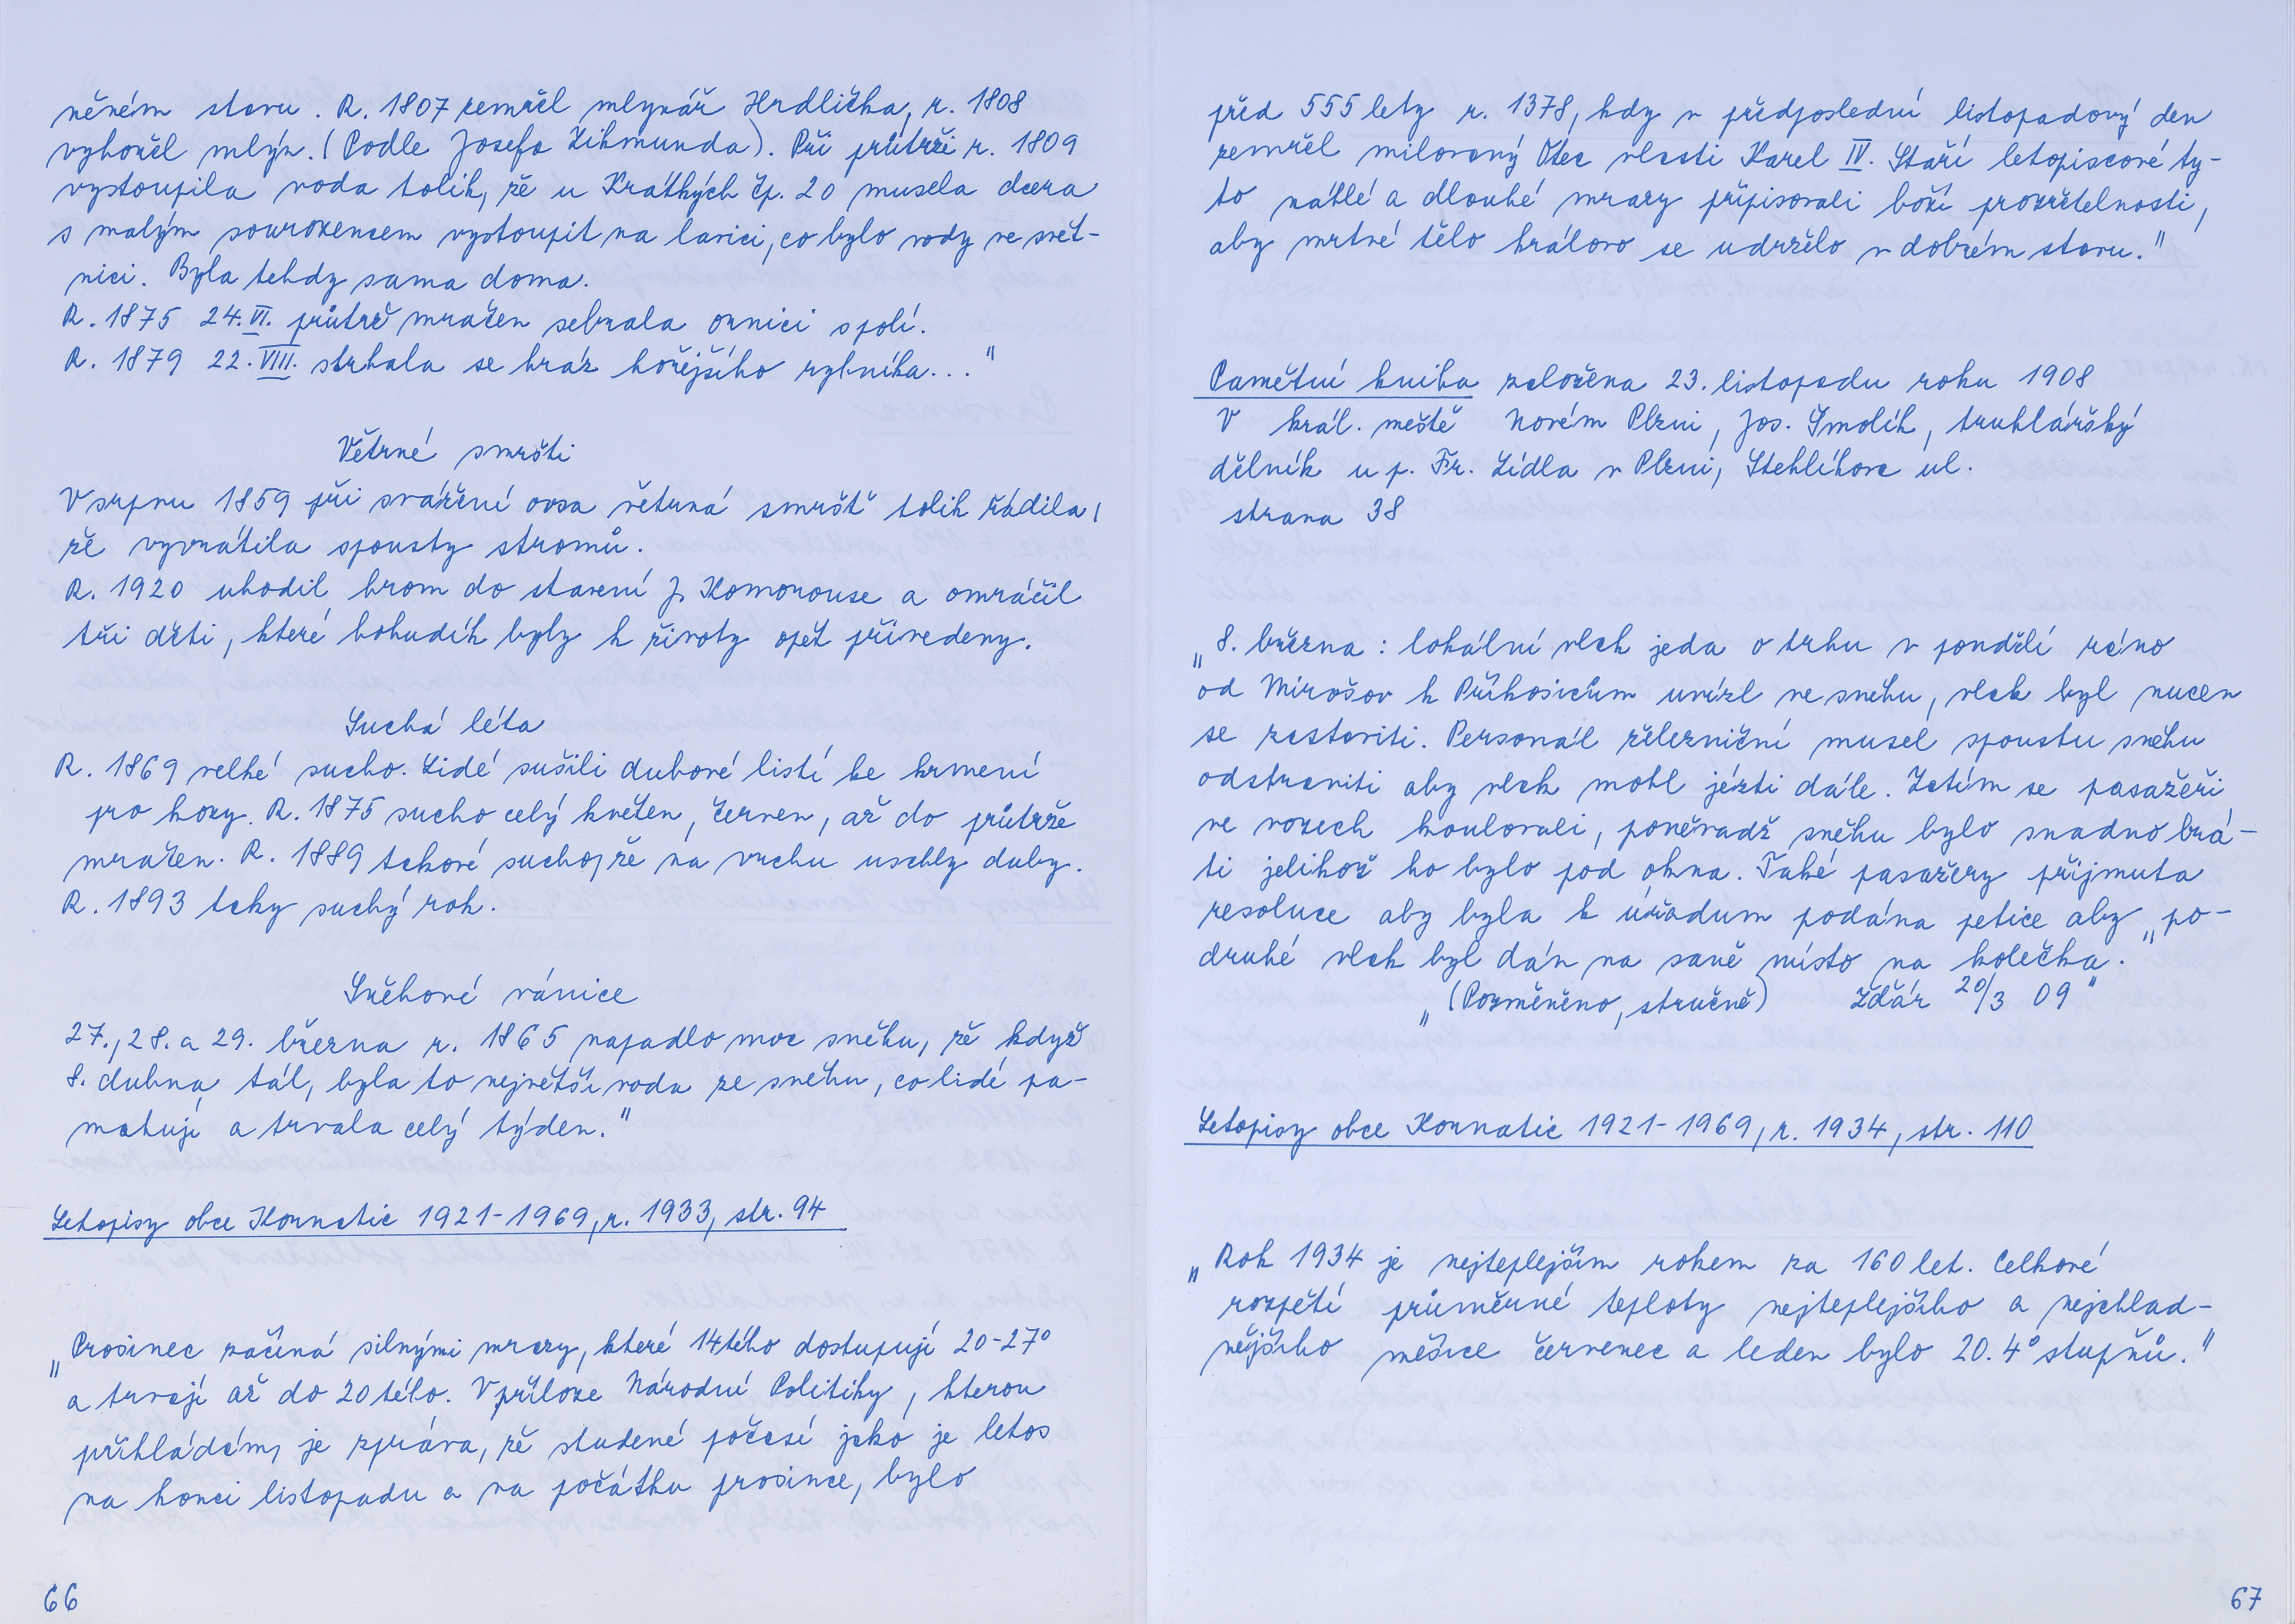 něném stavu. R. 1807 zemřel mlynář Hrdlička, r. 1808
vyhořel mlýn. (Podle Josefa Zikmunda). Při průtrži r. 1809
vystoupila voda tolik, že u Krátkých čp. 20 musela dcera
s malým sourozencem vystoupit na lavici, co bylo vody ve svět-
nici. Byla tehdy sama doma.
R. 1875 24. VI. průtrž mračen sebrala ornici s polí.
R. 1879 22. VIII. strhala se hráz hořejšího rybníka..."
Větrné smršti
V srpnu 1859 při svážení ovsa větrná smršť tolik řádila,
že vyvrátila spousty stromů.
R. 1920 uhodil hrom do stavení J. Komorouse a omráčil
tři děti, které bohudík byly k životy opět přivedeny.
Suchá léta
R. 1869 velké sucho. Lidé sušili dubové listí ke krmení
pro kozy. R. 1875 sucho celý květen, červen, až do průtrže
mračen. R. 1889 takové sucho, že na vrchu uschly duby.
R. 1893 taky suchý rok.
Sněhové vánice
27., 28. a 29. března r. 1865 napadlo moc sněhu, že když
8. dubna tál, byla to největší voda ze sněhu, co lidé pa-
matují a trvala celý týden."
Letopisy obce Kornatic 1921-1969, r. 1933, str. 94
„Prosinec začíná silnými mrazy, které 14tého dostupují 20-27°
a trvají až do 20tého. V příloze Národní Politiky, kterou
přikládám, je zpráva, že studené počasí jako je letos
na konci listopadu a na počátku prosince, bylo
66
před 555 lety r. 1378, kdy v předposlední listopadový den
zemřel milovaný Otec vlasti Karel IV. Staří letopiscové ty-
to náhlé a dlouhé mrazy připisovali boží prozřetelnosti,
aby mrtvé tělo královo se udrželo v dobrém stavu."
Pamětní kniha založena 23. listopadu roku 1908
V král. meště Novém Plzni, Jos. Smolík, truhlářský
dělník u p. Fr. Lídla v Plzni, Stehlíkova ul.
strana 38
„8. března: lokální vlak jeda o trhu v pondělí ráno
od Mirošov k Příkosicům uvízl ve snehu, vlak byl nucen
se zastaviti. Personál železniční musel spoustu sněhu
odstraniti aby vlak mohl jézti dále. Zatím se pasažeři
ve vozech koulovali, poněvadž sněhu bylo snadno brá-
ti jelikož ho bylo pod okna. Také pasažery přijmuta
resoluce aby byla k úřadum podána petice aby „po-
druhé vlak byl dán na saně místo na kolečka.
„(Pozměněno, stručně) Ždár 20/3 09"
Letopisy obce Kornatic 1921-1969, r. 1934, str. 110
„Rok 1934 je nejteplejším rokem za 160 let. Celkové
rozpětí průměrné teploty nejteplejšího a nejchlad-
nějšího měsíce červenec a leden bylo 20.4° stupňů."
67